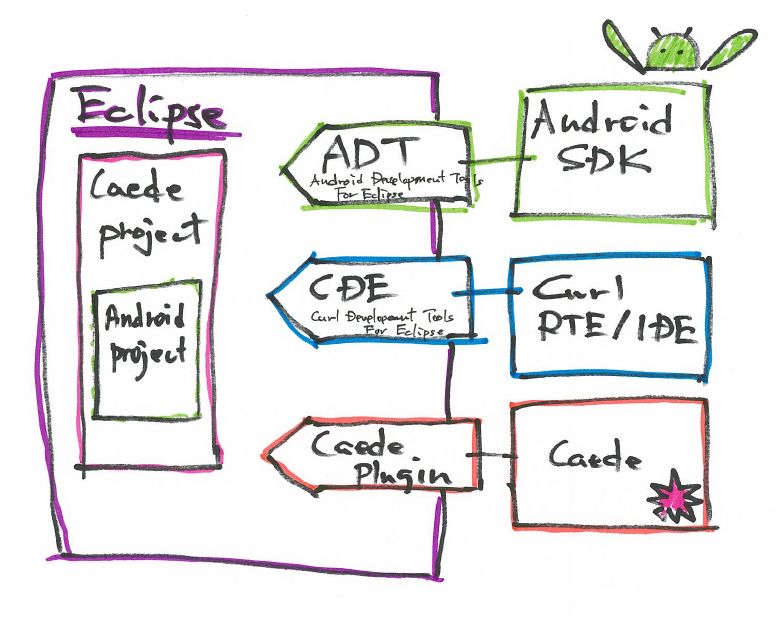 Eclipse
Caede
project
Android
project
ADT
Android Development Tools
For Eclipse
Android
SDK
CDE
Curl Development Tools
For Eclipse
Curl
RTE/IDE
Caede
Plugin
Caede